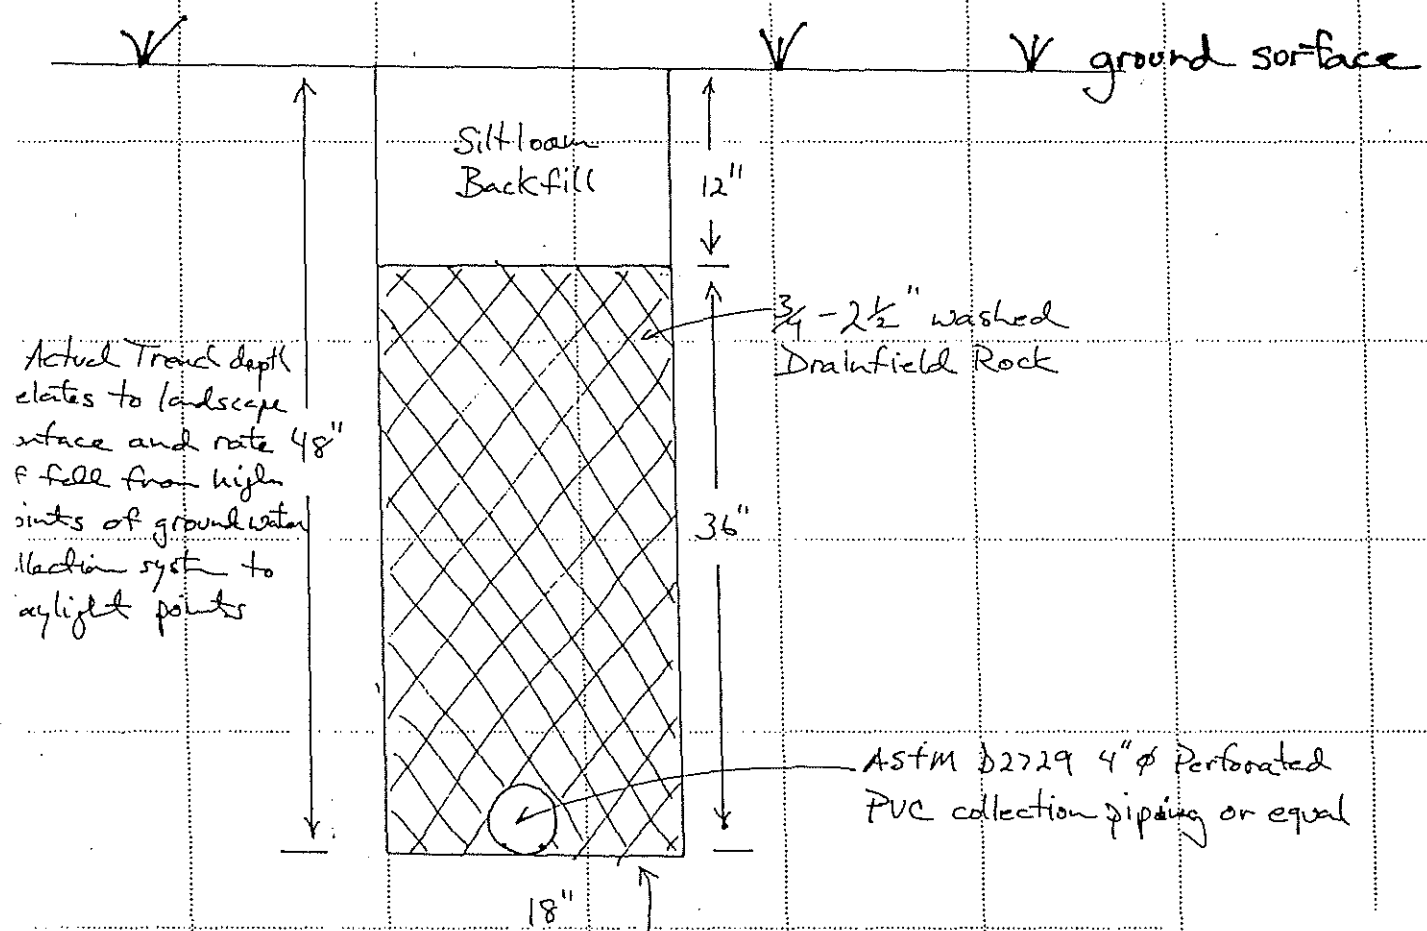 ground sorface
Silt loam
Backfill
12"
3/4 - 2 1/2" washed
Drainfield Rock
Actual Trench depth
elates to landscape
urface and rate
f fall from high
oints of groundwater
llection system to
aylight points
48"
36"
ASTM D2729 4"φ Perforated
PVC collection pipiing or equal
18"